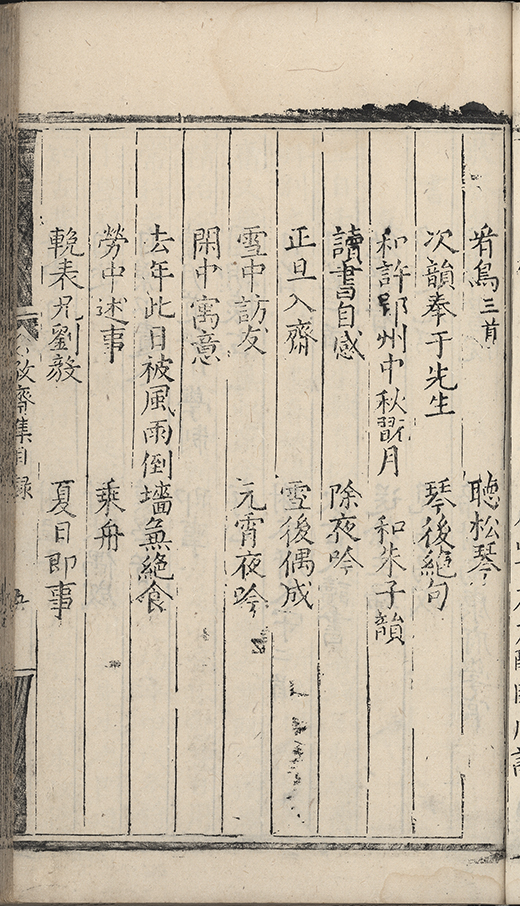 看鳥三首 聽松琴
次韻奉于先生 琴後絶句
和許郢州中秋翫月 和朱子韻
讀書自感 除夜吟
正旦入齋 雪後偶成
雪中訪友 元宵夜吟
閑中寓意
去年此日被風雨倒墻兼絶食
勞中述事 乘舟
輓表兄劉毅 夏日即事
敬齋集目録